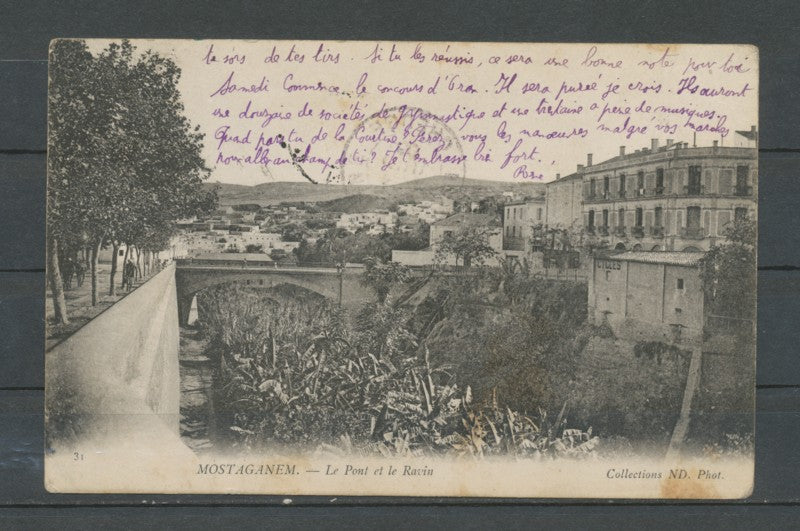 tu sors de tes tirs. Si tu les réussis, ce sera une bonne note pour toi
Samedi Commence le concours d'Oran. Il sera puré je crois. Ils auront
une douzaine de sociétés de gymnastique et une trentaine a peine de musiques.
Quad pars tu de la Courtine? Ferez vous les manœuvres malgré vos marches
pour aller au champ de tir? Je t'embrasse bien fort.
Rose
CYCLES
31
MOSTAGANEM. — Le Pont et le Ravin
Collections ND. Phot.